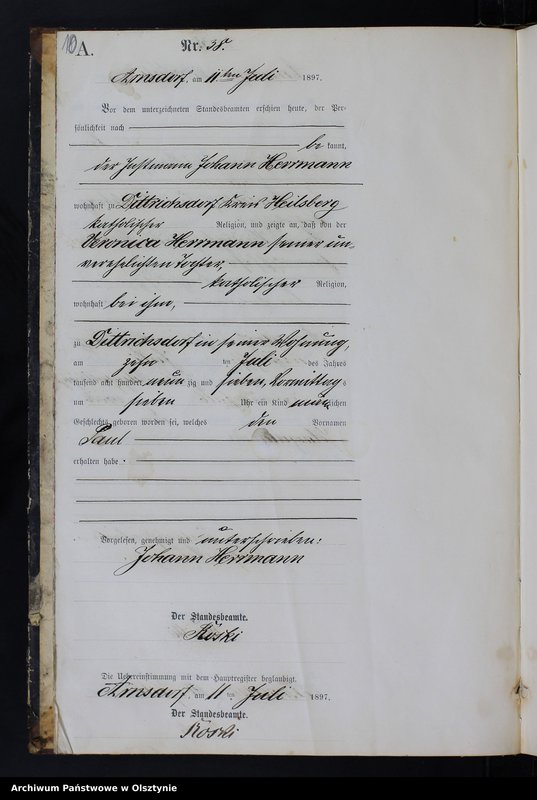 10
A.
Nr. 38.
Arnsdorf, am 11ten Juli 1897.
Vor dem unterzeichneten Standesbeamten erschien heute, der Per-
sönlichkeit nach
be kannt,
der Instmann Johann Herrmann
wohnhaft zu Dittrichsdorf Kreis Heilsberg
katholischer Religion, und zeigte an, daß von der
Veronica Herrmann seiner un-
verehelichten Tochter,
katholischer Religion,
wohnhaft bei ihm,
zu Dittrichsdorf in seiner Wohnung,
am zehn ten Juli des Jahres
tausend acht hundert neun zig und sieben, Vormittag s
um sieben Uhr ein Kind männlichen
Geschlechts geboren worden sei, welches den Vornamen
Paul
erhalten habe.
Vorgelesen, genehmigt und unterschrieben:
Johann Herrmann
Der Standesbeamte.
Röski
Die Uebereinstimmung mit dem Hauptregister beglaubigt.
Arnsdorf, am 11 ten Juli 1897.
Der Standesbeamte.
Röski
Archiwum Państwowe w Olsztynie